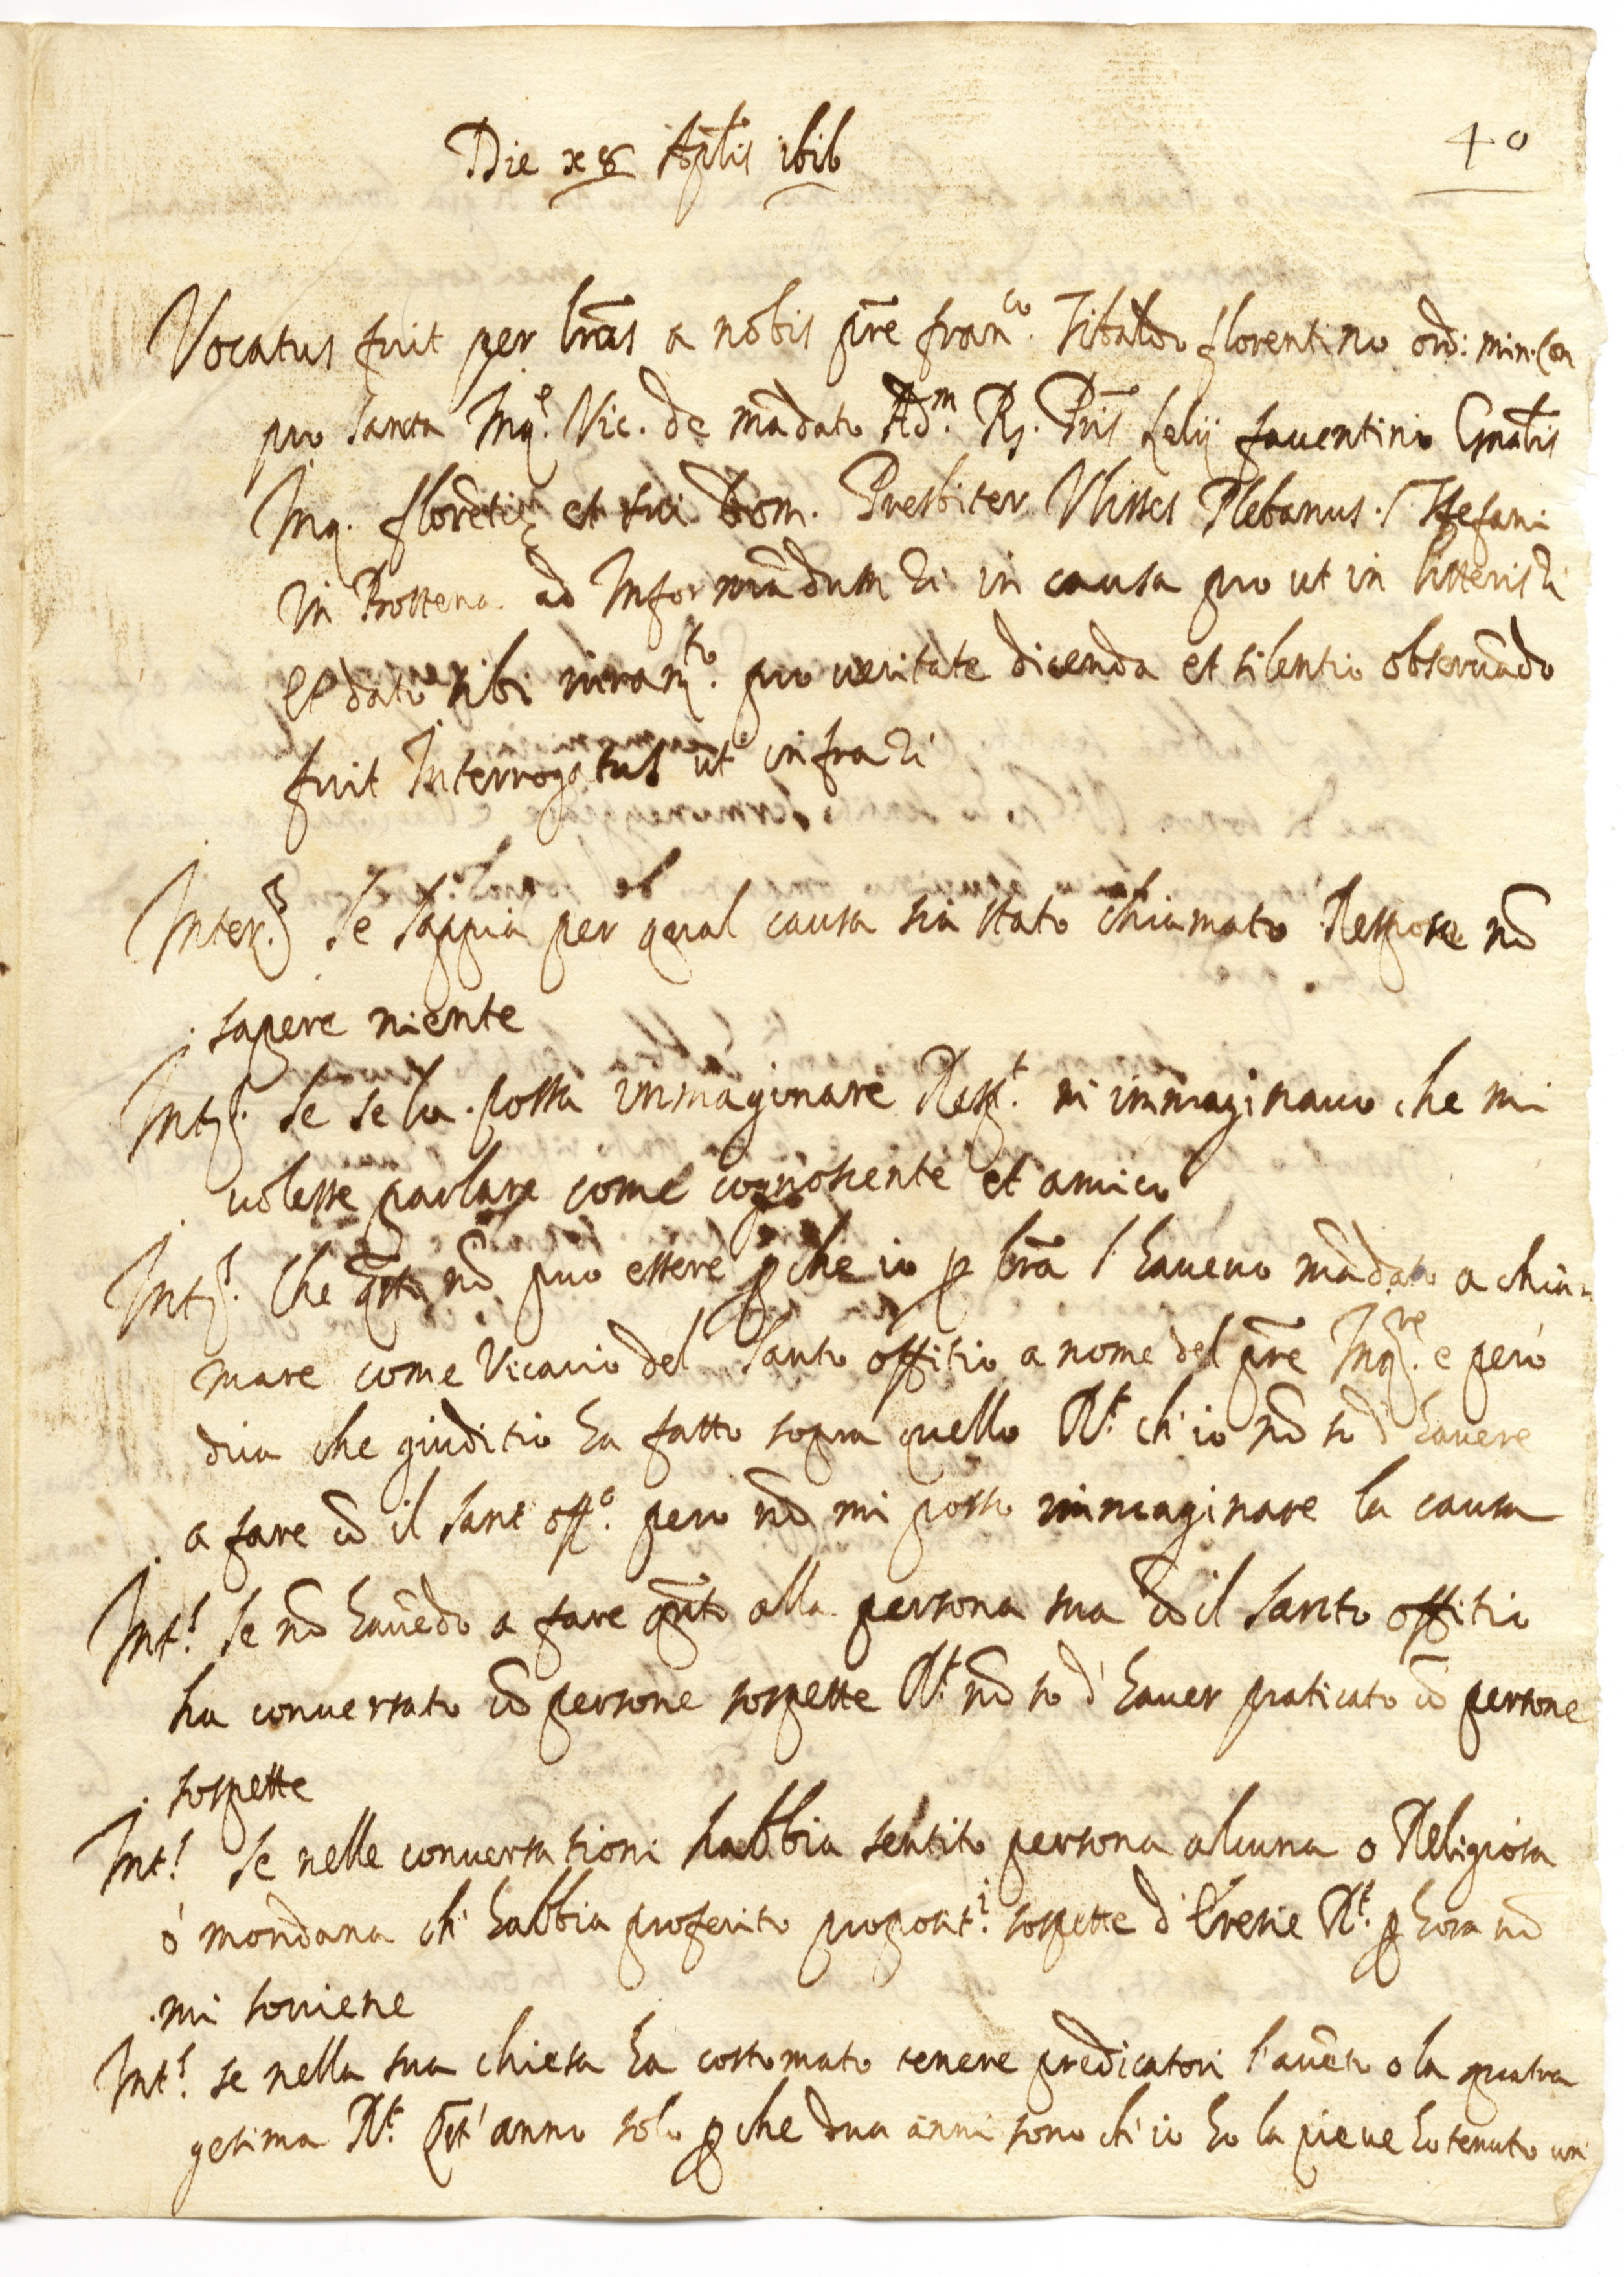 40
Die x8 Aplis ibib
Vocatus fuit per lras a nobis pre franco. Tibaldo florentino ord: min. Con
pro Sancta Inqe. Vic. de mādato Adm. Rj. Pris Lelij faventini Gnalis
Inq. florētię et sui dom. Presbiter Ulisses Plebanus. S. Stefani
in Bottena ad Informādum &i in causa pro ut in litteris &i
et dato sibi iuramto. pro veritate dicenda et silentio observādo
fuit Interrogatus ut infra &i
Inter. Se Sappia per qual causa sia stato chiamato Respose nō
sapere niente
Int. Se se lo possa immaginare Respt. mi immaginavo che mi
volesse parlare come cognoscente et amico
Int. Che qsto nō puo essere p che io p lra l'havevo mādato a chia=
mare come Vicario del Santo offitio a nome del pre Inqre. e però
dica che giuditio ha fatto sopra quello Rt. ch'io nō so d'havere
a fare cō il Sant offo. pero nō mi posso immaginare la causa
Int. Se nō havēdo a fare qnto alla persona sua cō il Santo offitio
ha conversato cō persone sospette Rt. nō so d'haver praticato cō persone
sospette
Int. Se nelle conversationi habbia sentito persona alcuna o Religiosa
ò mondana ch' habbia proferito propositi. sospette d'Eresie Rt. p hora nō
mi soviene
Int. se nella sua chiesa ha costomato tenere predicatori l'avēto o la quatra
gesima Rt. Qst'anno solo p che dua anni sono ch'io ho la pieve ho tenuto un